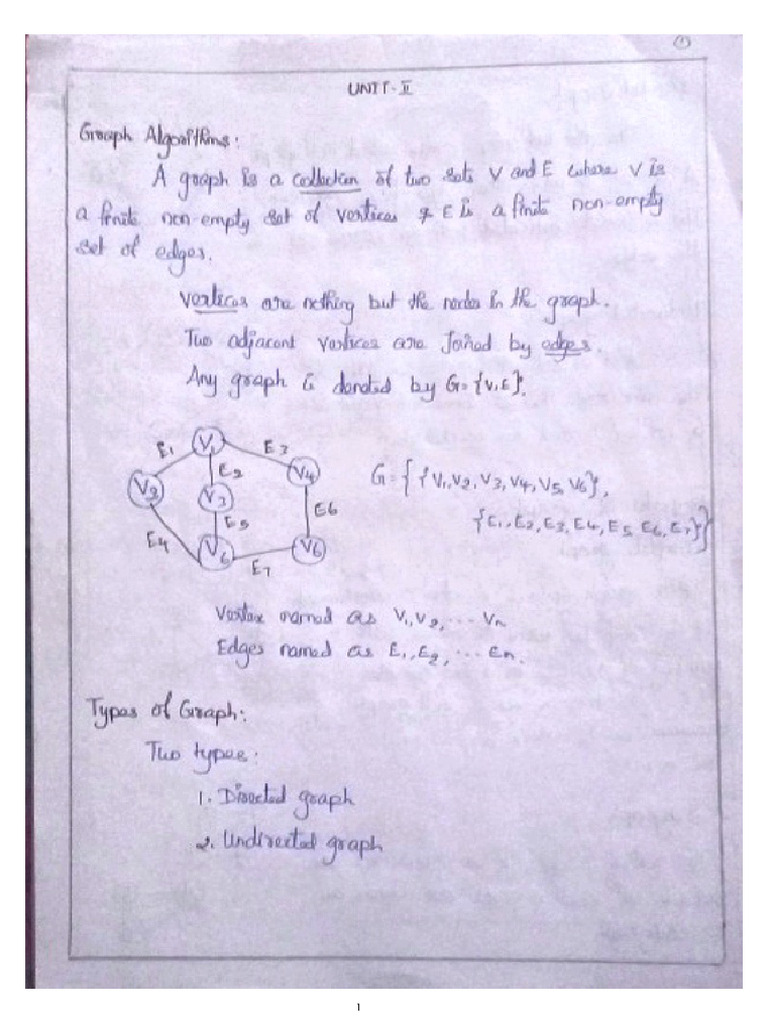 1
UNIT-II
Graph Algorithms:
A graph is a collection of two sets V and E where V is
a finite non-empty set of vertices & E is a finite non-empty
set of edges.
Vertices are nothing but the nodes in the graph.
Two adjacent vertices are Joined by edges.
Any graph G is denoted by G = {V, E}.
E1 V1 E3
V2 E2 V4
V3
E4 E5 E6
V6
E7
G = { {V1, V2, V3, V4, V5, V6},
{E1, E2, E3, E4, E5, E6, E7} }
Vertex named as V1, V2, ... Vn
Edges named as E1, E2, ... En.
Types of Graph:
Two types:
1. Directed graph
2. Undirected graph
1